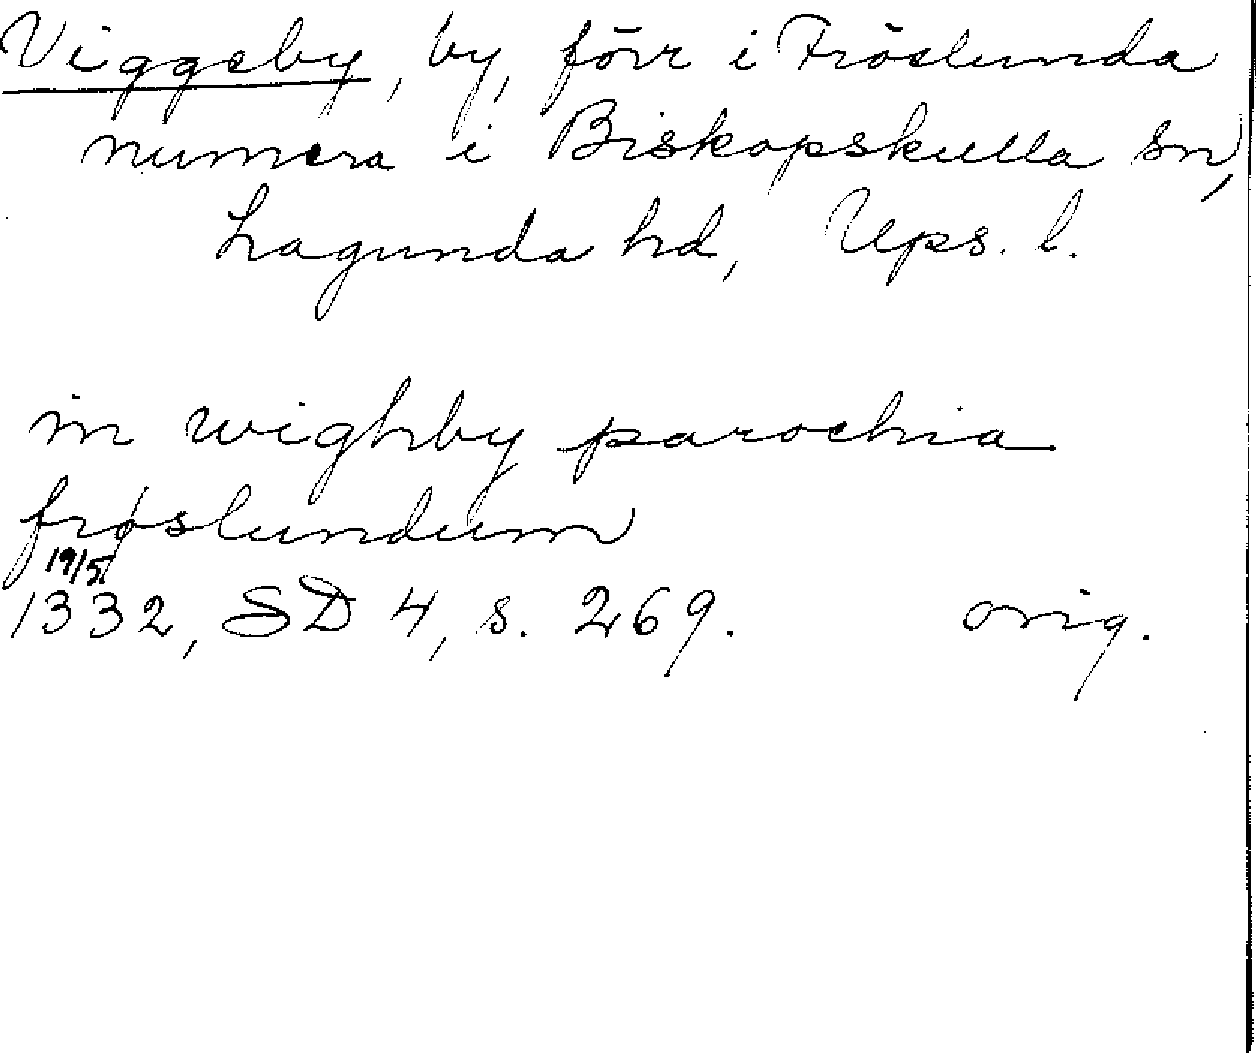 Viggeby, by, förr i Fröslunda
numera i Biskopskulla sn,
Lagunda hd, Ups. l.
in wighby parochia
frøslundum
19/5
1332, SD 4, s. 269. orig.